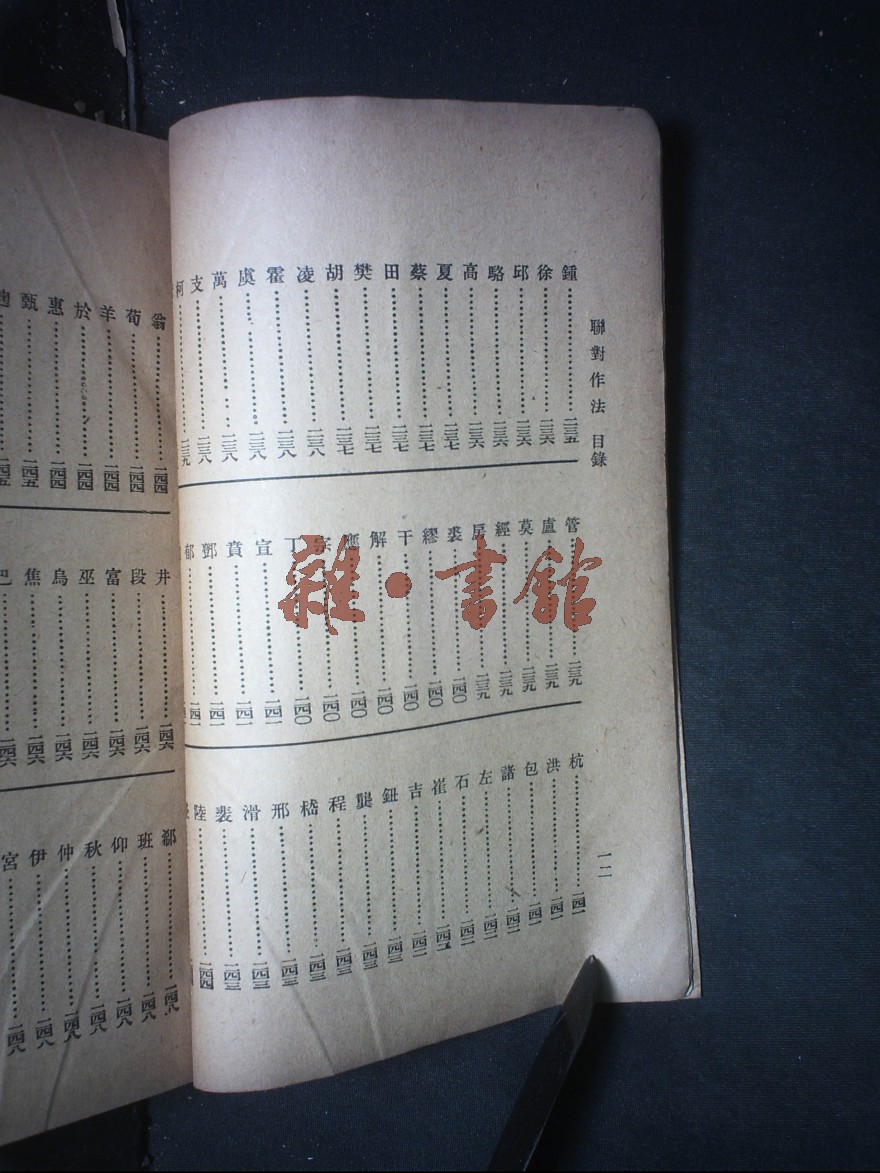 聯對作法 目錄
一二
鍾……一三五
徐……一三六
邱……一三六
駱……一三六
高……一三六
夏……一三七
蔡……一三七
田……一三七
樊……一三七
胡……一三七
凌……一三八
霍……一三八
虞……一三八
萬……一三八
支……一三八
柯……一三九
管……一三九
盧……一三九
莫……一三九
經……一三九
房……一三九
裘……一四〇
繆……一四〇
干……一四〇
解……一四〇
應……一四〇
宗……一四〇
丁……一四〇
宣……一四一
賁……一四一
鄧……一四一
郁……一四一
杭……一四一
洪……一四一
包……一四二
諸……一四二
左……一四二
石……一四二
崔……一四二
吉……一四二
鈕……一四三
龔……一四三
程……一四三
嵇……一四三
邢……一四三
滑……一四三
裴……一四三
陸……一四四
翁……一四四
荀……一四四
羊……一四四
於……一四四
惠……一四四
甄……一四五
井……一四六
段……一四六
富……一四六
巫……一四六
烏……一四六
焦……一四六
巴……一四六
郗……一四八
班……一四八
仰……一四八
秋……一四八
仲……一四八
伊……一四八
宮……一四八
雜·書館